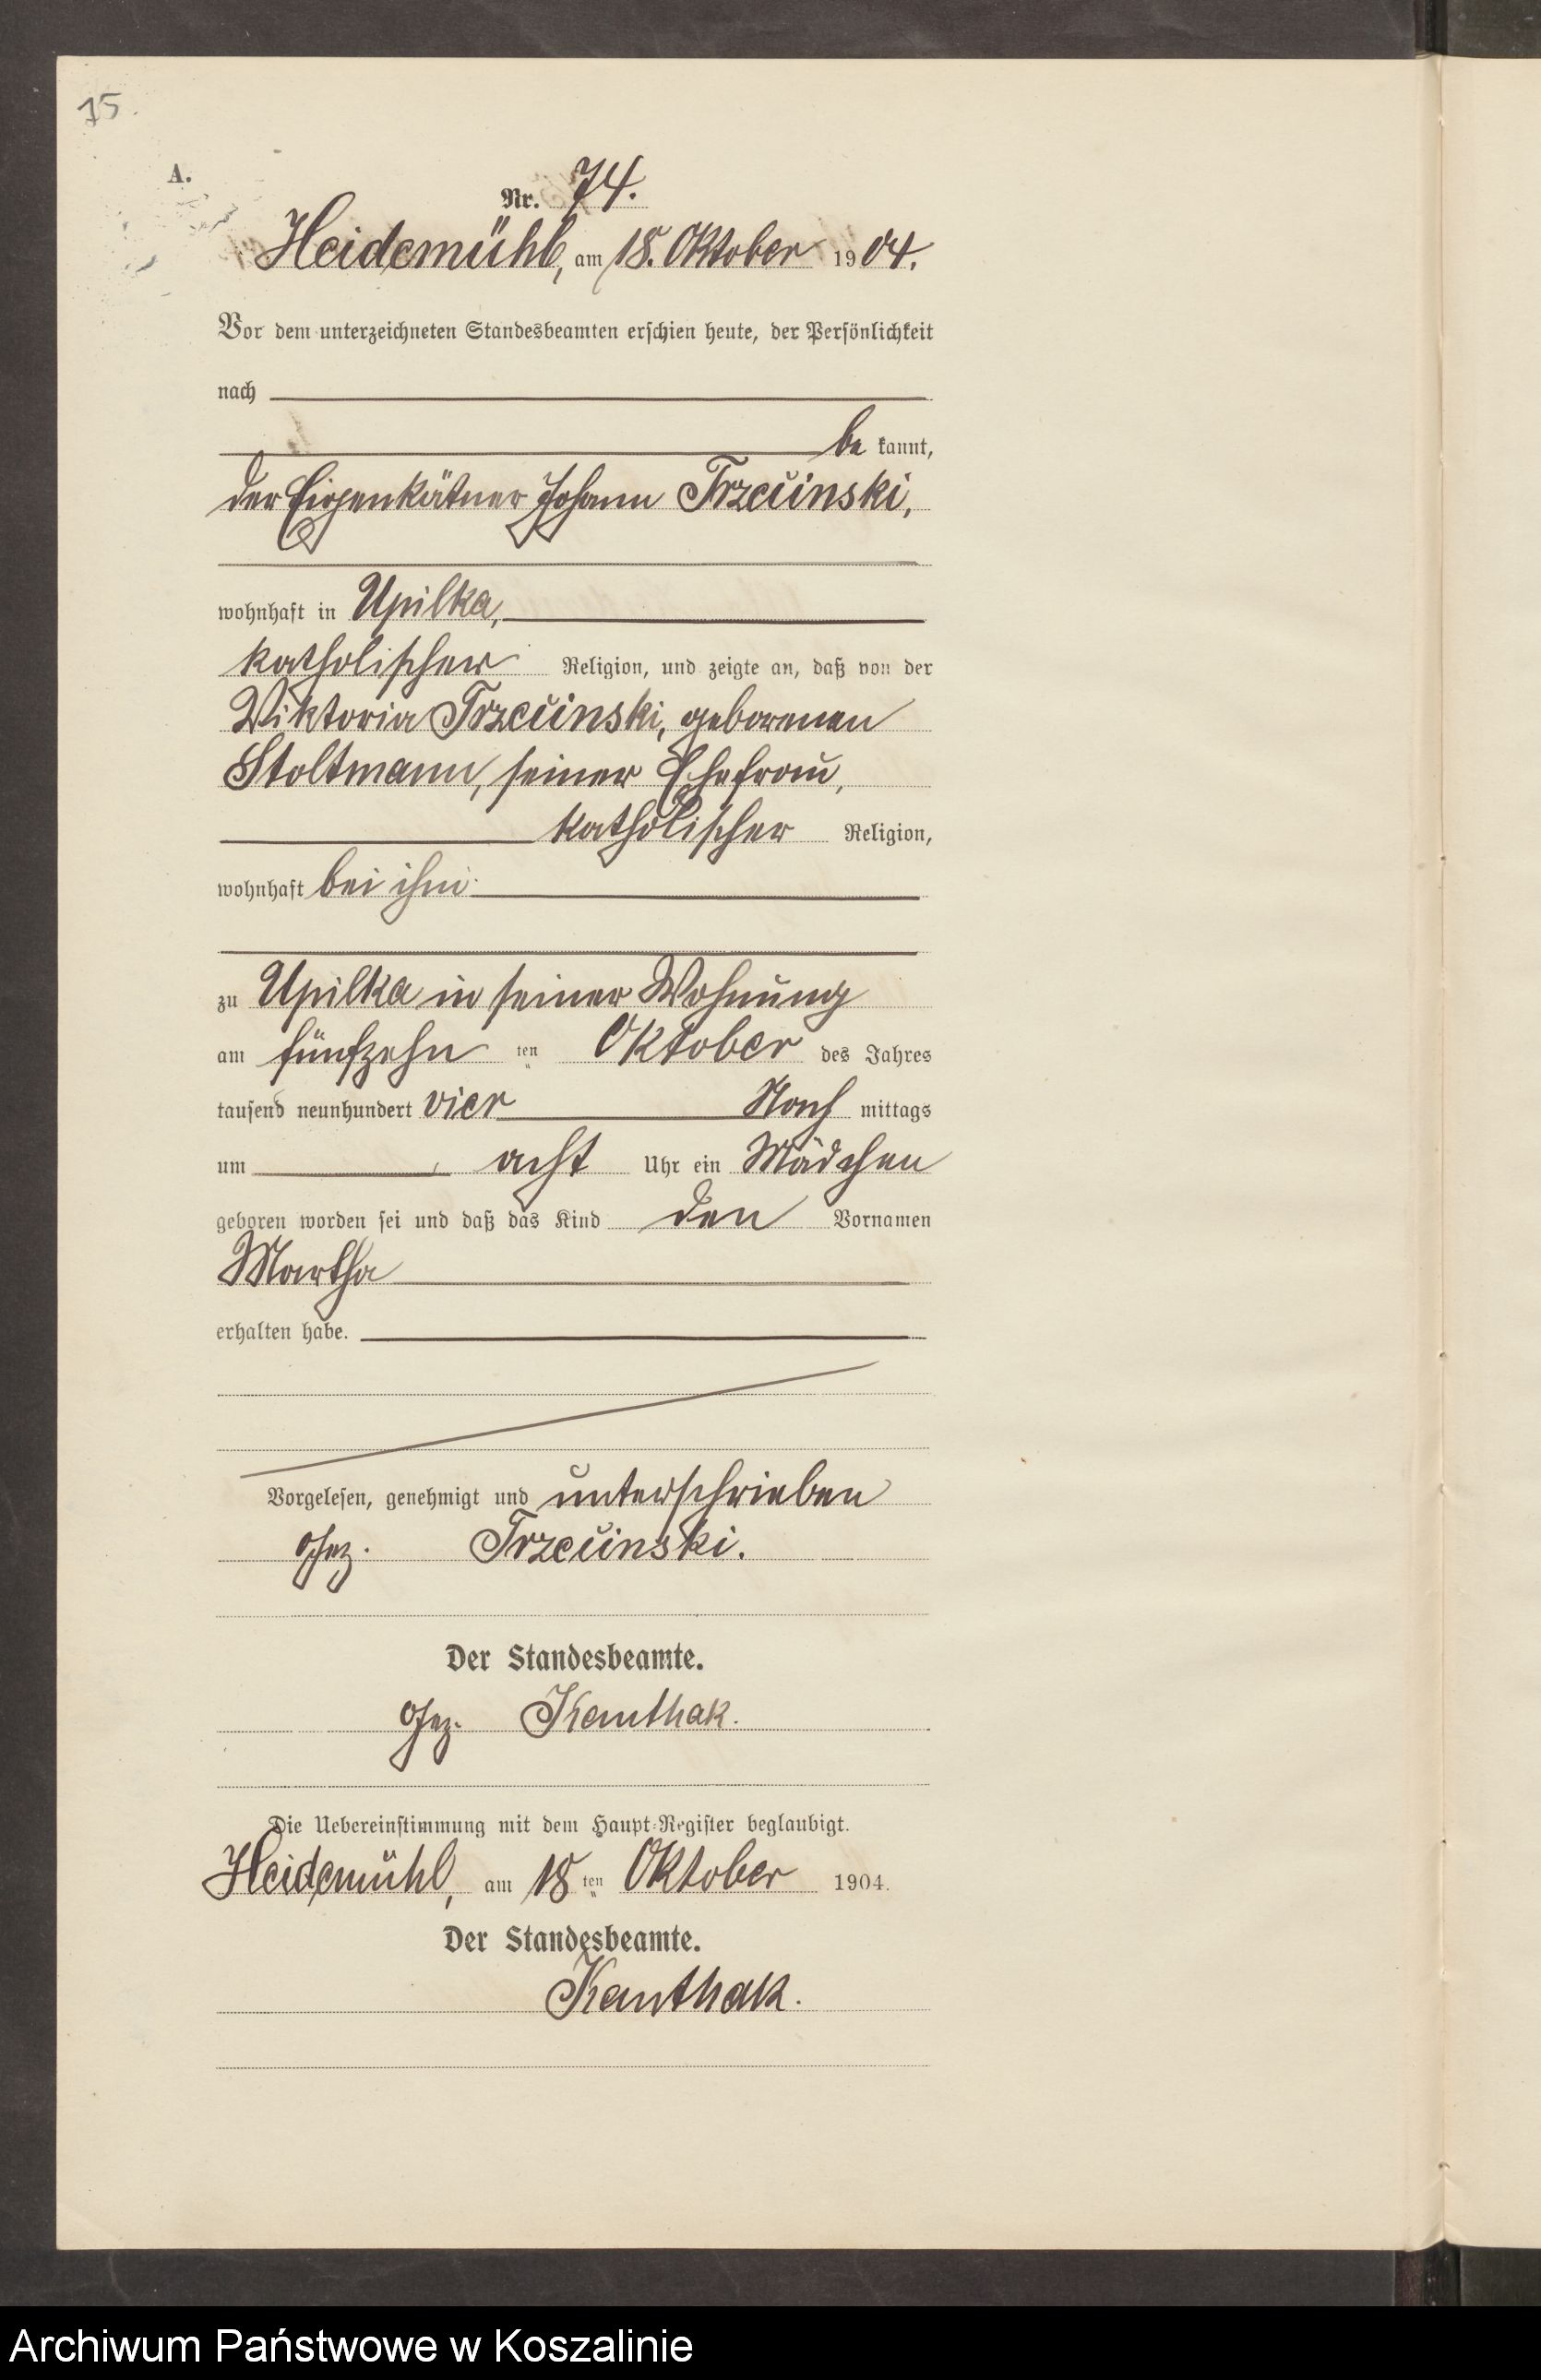 75.
A.
Nr. 74.
Heidemühl, am 18. Oktober 1904.
Vor dem unterzeichneten Standesbeamten erschien heute, der Persönlichkeit
nach
be kannt,
der Eigenkätner Johann Trzcinski,
wohnhaft in Upilka,
katholischer Religion, und zeigte an, daß von der
Viktoria Trzcinski, geborenen
Stoltmann, seiner Ehefrau,
katholischer Religion,
wohnhaft bei ihm
zu Upilka in seiner Wohnung
am fünfzehn ten Oktober des Jahres
tausend neunhundert vier Nach mittags
um acht Uhr ein Mädchen
geboren worden sei und daß das Kind den Vornamen
Martha
erhalten habe.
Vorgelesen, genehmigt und unterschrieben
Gez. Trzcinski.
Der Standesbeamte.
Gez. Kanthak.
Die Uebereinstimmung mit dem Haupt-Register beglaubigt.
Heidemühl, am 18 ten Oktober 1904.
Der Standesbeamte.
Kanthak.
Archiwum Państwowe w Koszalinie